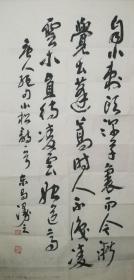 自小刺頭深草裏而今漸
覺出蓬蒿時人不識凌
雲木直待凌雲始道高
唐人絕句小松